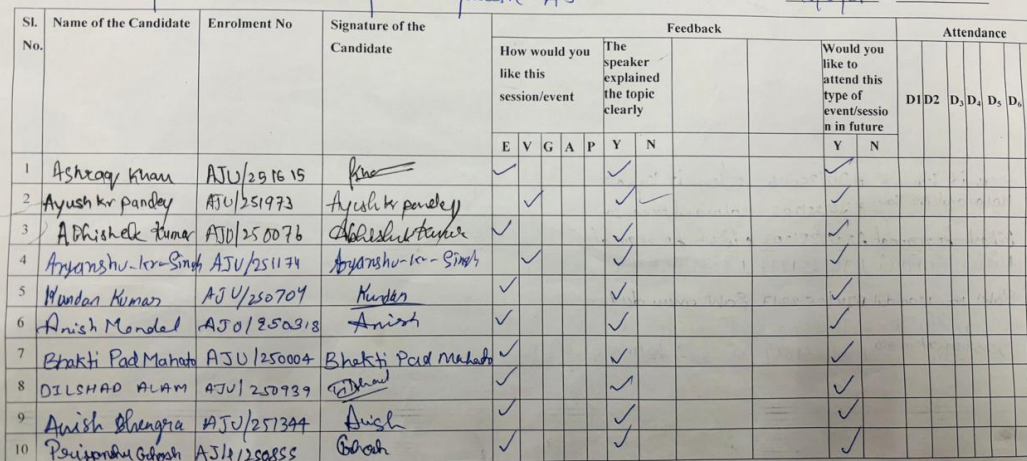 Sl. No. Name of the Candidate Enrolment No Signature of the Candidate Feedback Attendance
How would you like this session/event The speaker explained the topic clearly Would you like to attend this type of event/session in future D1 D2 D3 D4 D5 D6
E V G A P Y N Y N
1 Ashraq Khan AJU/251615 Khan ✓ ✓ ✓
2 Ayush kr pandey AJU/251973 Ayush kr pandey ✓ ✓ ✓ ✓
3 Abhishek Kumar AJU/250076 Abhishek Kumar ✓ ✓ ✓
4 Aryanshu-kr-Singh AJU/251174 Aryanshu-kr-Singh ✓ ✓ ✓
5 Kundan Kumar AJU/250704 Kundan ✓ ✓ ✓
6 Anish Mondal AJU/250318 Anish ✓ ✓ ✓
7 Bhakti Pad Mahato AJU/250004 Bhakti Pad Mahato ✓ ✓ ✓
8 DILSHAD ALAM AJU/250939 ✓ ✓ ✓
9 Anish Bhengra AJU/251344 Anish ✓ ✓ ✓
10 Ghosh AJU/250855 Ghosh ✓ ✓ ✓